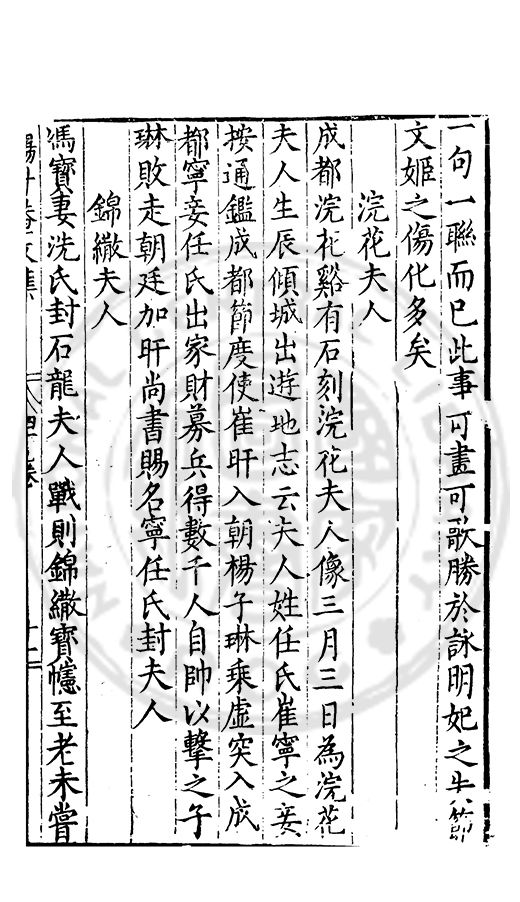 一句一聯而已此事可畫可歌勝於詠明妃之失節
文姬之傷化多矣
浣花夫人
成都浣花谿有石刻浣花夫人像三月三日為浣花
夫人生辰傾城出遊地志云夫人姓任氏崔寧之妾
按通鑑成都節度使崔旰入朝楊子琳乘虛突入成
都寧妾任氏出家財募兵得數千人自帥以擊之子
琳敗走朝廷加旰尚書賜名寧任氏封夫人
錦繖夫人
馮寶妻洗氏封石龍夫人戰則錦繖寶幰至老未嘗